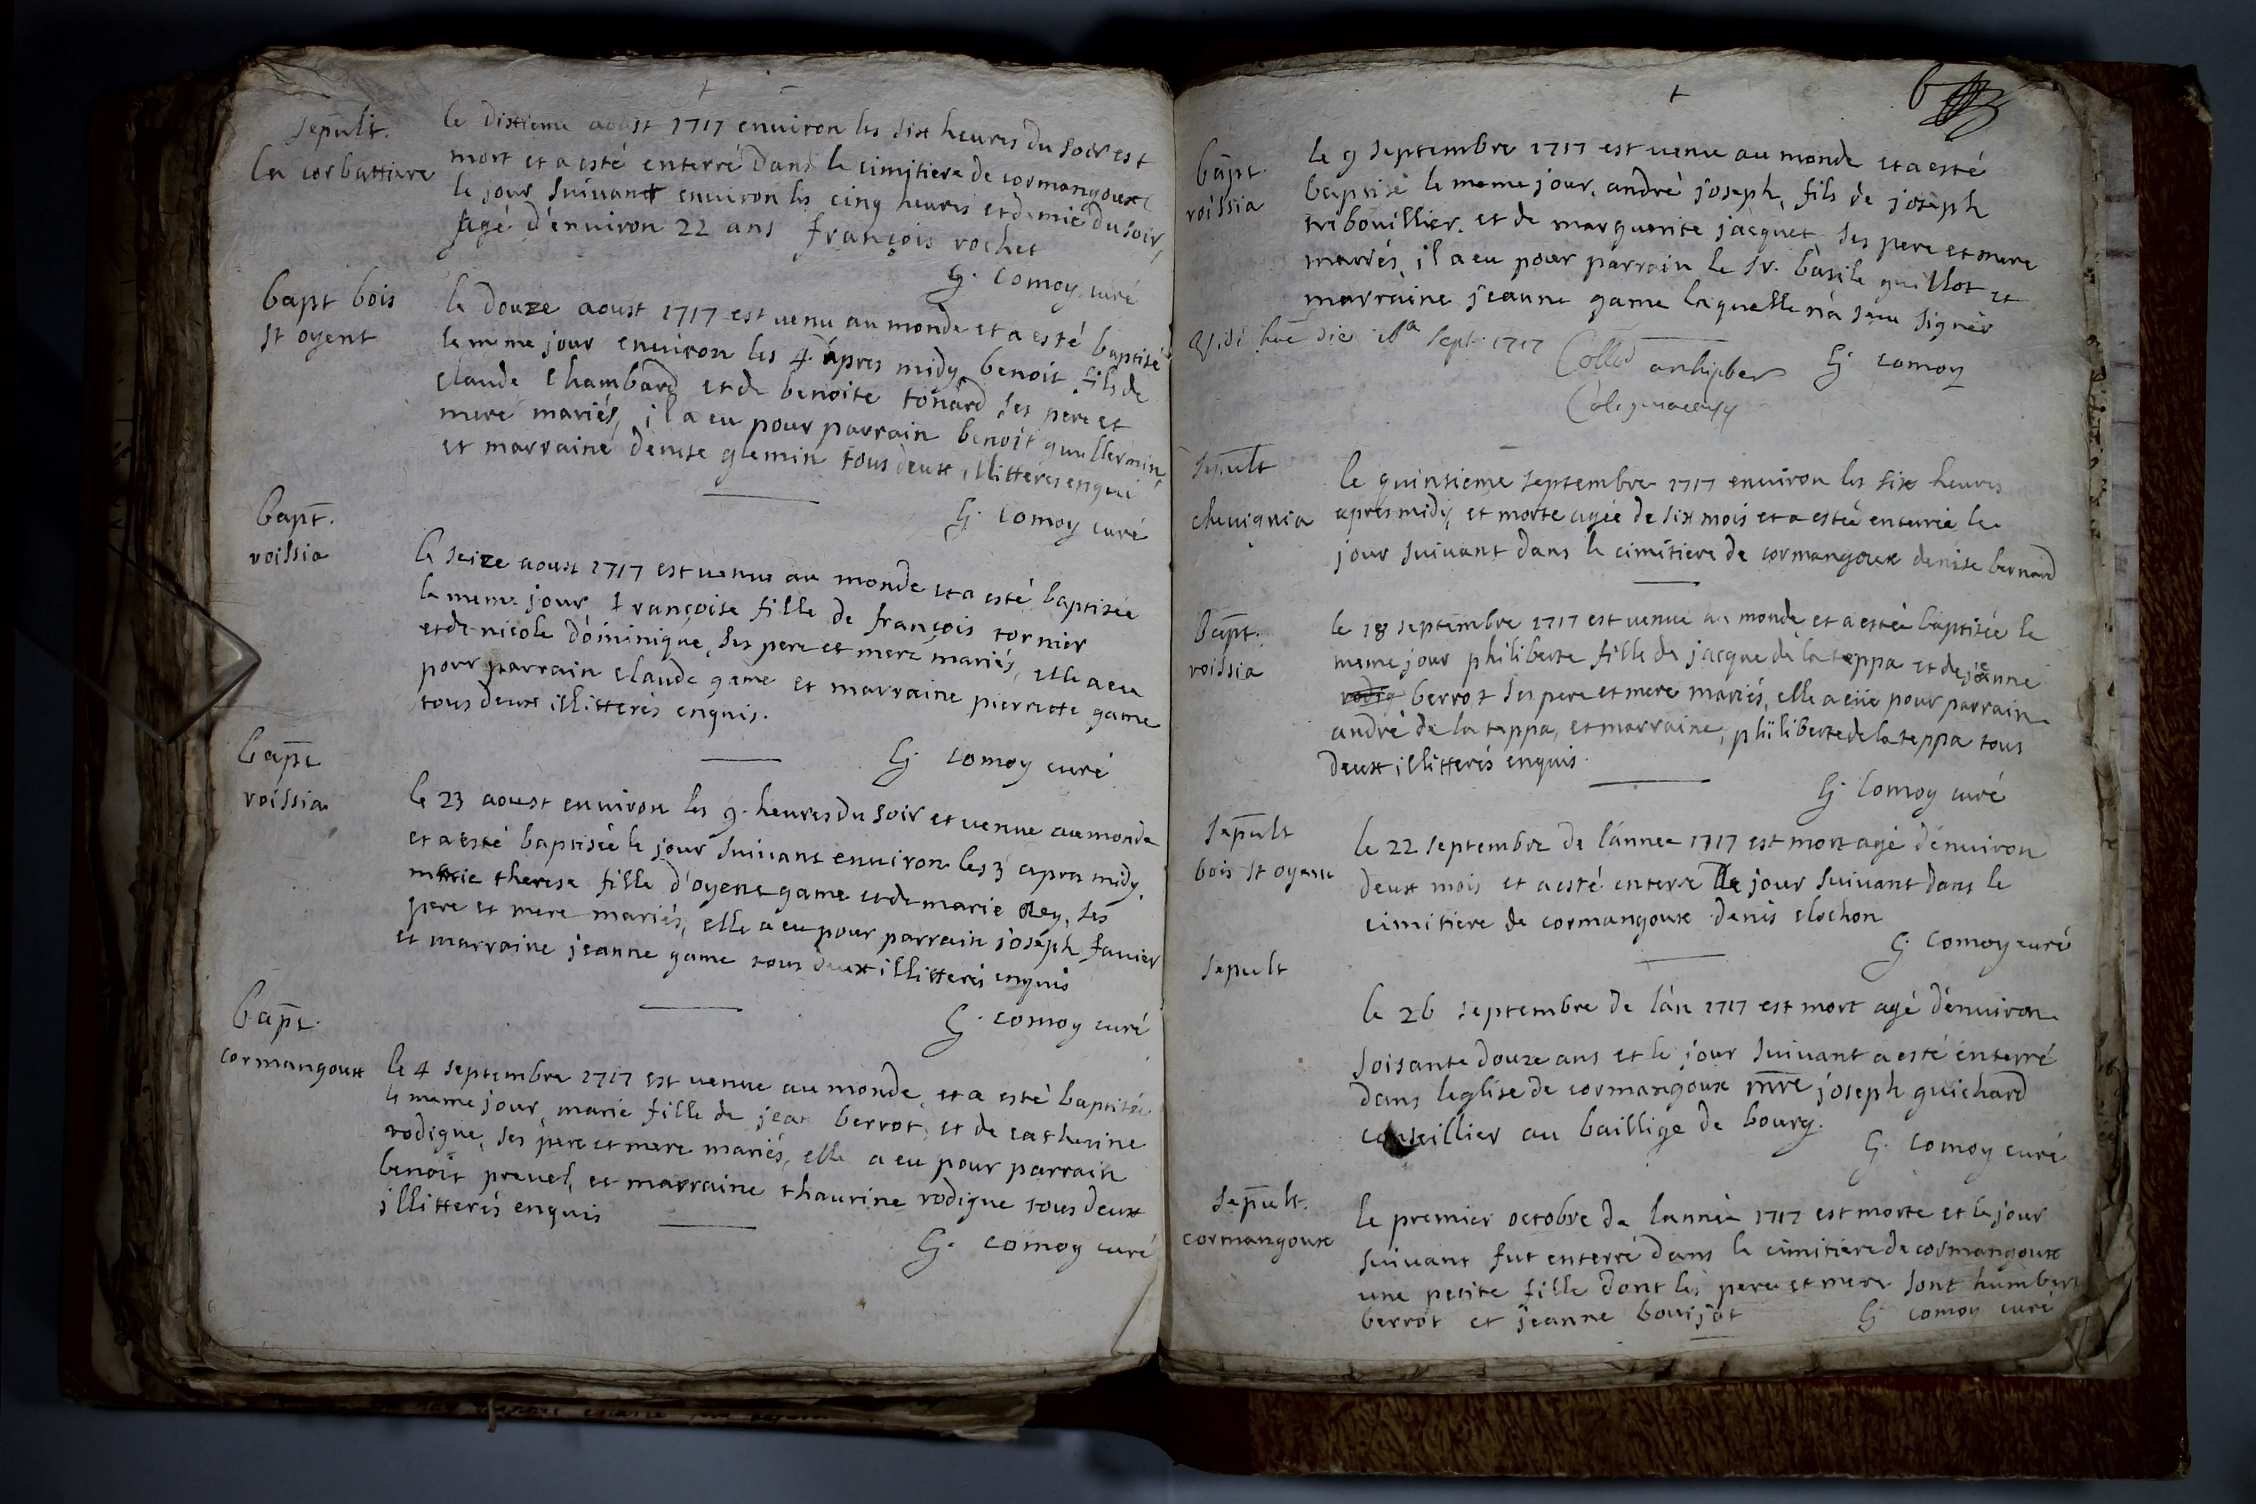 sepult.
la corbattiere
le dixieme aoust 1717 environ les six heures du soir est
mort et a esté enterré dans le cimitiere de cormangoux
le jour suivant environ les cinq heures et demie du soir,
agé d'environ 22 ans françois rochet
G. Comoy curé
bapt bois
st oyent
le douze aoust 1717 est venu au monde et a esté baptisé
le meme jour environ les 4 apres midy benoit fils de
claude Chambard et de benoite tonard ses pere et
mere mariés, il a eu pour parrain benoit guillermin
et marraine denise glemin tous deux illitterés enquis
G. Comoy curé
bapt.
voissia
le seize aoust 1717 est venue au monde et a esté baptisée
le meme jour françoise fille de françois tornier
et de nicole dominique, ses pere et mere mariés, elle a eu
pour parrain claude game et marraine pierrette game
tous deux illitterés enquis.
G Comoy curé
bapt
voissia
le 23 aoust environ les 9. heures du soir et venue au monde
et a esté baptisée le jour suivant environ les 3 apres midy
marie therese fille d'oyent game et de marie Rey, ses
pere et mere mariés, elle a eu pour parrain joseph favier
et marraine jeanne game tous deux illitterés enquis
G. Comoy curé
bapt.
cormangoux
le 4 septembre 1717 est venue au monde, et a esté baptisée
le meme jour, marie fille de jean berrot, et de catherine
rodigue, ses pere et mere mariés, elle a eu pour parrain
benoit prevel, et marraine thaurine rodigue tous deux
illitterés enquis
G. Comoy curé
6
bapt.
voissia
le 9 septembre 1717 est venue au monde et a esté
baptisé le meme jour, andré joseph, fils de joseph
tribouillier, et de marguerite jacquet ses pere et mere
mariés, il a eu pour parrain le Sr. basile guillot et
marraine jeanne game laquelle n'a sceu signer
die sept. 1717
G Comoy
sepult
chevignia
le quinsieme septembre 1717 environ les six heures
apres midy et morte agée de six mois et a esteé enterrée le
jour suivant dans le cimitiere de cormangoux denise bernard
Bapt.
voissia
le 18 septembre 1717 est venue au monde et a esteé baptisée le
meme jour philiberte fille de jacque de la teppa et de jeanne
berrot ses pere et mere mariés, elle a eüe pour parrain
andré de la teppa, et marraine, philiberte de la teppa tous
deux illitterés enquis.
G. Comoy curé
sepult
bois st oyent
le 22 septembre de l'année 1717 est mort agé d'environ
deux mois et a esté enterré le jour suivant dans le
cimitiere de cormangoux denis clochon
G. Comoy curé
sepult
le 26 septembre de l'an 1717 est mort agé d'environ
soisante douze ans et le jour suivant a esté enterré
dans leglise de cormangoux mre joseph guichard
conseillier au baillige de bourg.
G. Comoy curé
sepult.
cormangoux
le premier octobre de lannée 1717 est morte et le jour
suivant fut enterré dans le cimitiere de cormangoux
une petite fille dont les pere et mere sont humbert
berrot et jeanne bourjot
G Comoy curé